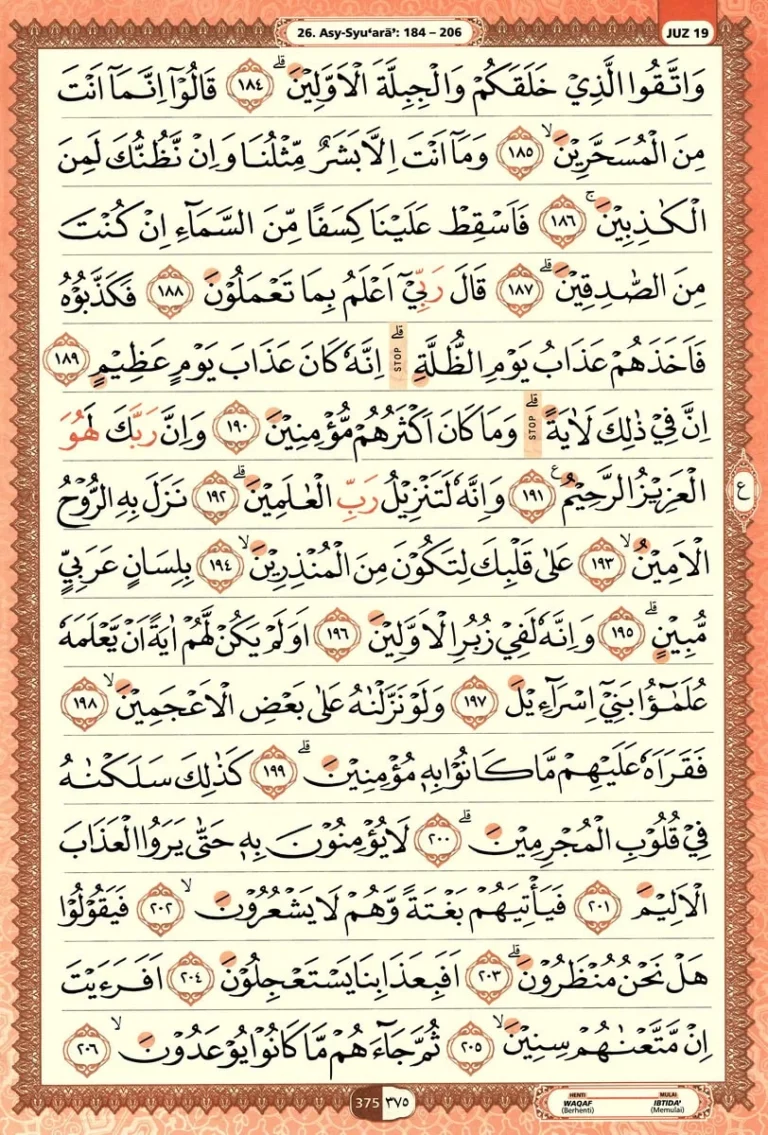 26. Asy-Syu‘arā’: 184 – 206
JUZ 19
وَاتَّقُوا الَّذِيْ خَلَقَكُمْ وَالْجِبِلَّةَ الْاَوَّلِيْنَ ۗ ١٨٤ قَالُوْٓا اِنَّمَآ اَنْتَ
مِنَ الْمُسَحَّرِيْنَ ۙ ١٨٥ وَمَآ اَنْتَ اِلَّا بَشَرٌ مِّثْلُنَا وَاِنْ نَّظُنُّكَ لَمِنَ
الْكٰذِبِيْنَ ۚ ١٨٦ فَاَسْقِطْ عَلَيْنَا كِسَفًا مِّنَ السَّمَاۤءِ اِنْ كُنْتَ
مِنَ الصّٰدِقِيْنَ ۗ ١٨٧ قَالَ رَبِّيْٓ اَعْلَمُ بِمَا تَعْمَلُوْنَ ١٨٨ فَكَذَّبُوْهُ
فَاَخَذَهُمْ عَذَابُ يَوْمِ الظُّلَّةِ ۗ STOP اِنَّهٗ كَانَ عَذَابَ يَوْمٍ عَظِيْمٍ ١٨٩
اِنَّ فِيْ ذٰلِكَ لَاٰيَةً ۗ STOP وَمَا كَانَ اَكْثَرُهُمْ مُّؤْمِنِيْنَ ١٩٠ وَاِنَّ رَبَّكَ لَهُوَ
الْعَزِيْزُ الرَّحِيْمُ ࣖ ١٩١ وَاِنَّهٗ لَتَنْزِيْلُ رَبِّ الْعٰلَمِيْنَ ۗ ١٩٢ نَزَلَ بِهِ الرُّوْحُ
ع
الْاَمِيْنُ ۙ ١٩٣ عَلٰى قَلْبِكَ لِتَكُوْنَ مِنَ الْمُنْذِرِيْنَ ۙ ١٩٤ بِلِسَانٍ عَرَبِيٍّ
مُّبِيْنٍ ۗ ١٩٥ وَاِنَّهٗ لَفِيْ زُبُرِ الْاَوَّلِيْنَ ١٩٦ اَوَلَمْ يَكُنْ لَّهُمْ اٰيَةً اَنْ يَّعْلَمَهٗ
عُلَمٰۤؤُا بَنِيْٓ اِسْرَاۤءِيْلَ ١٩٧ وَلَوْ نَزَّلْنٰهُ عَلٰى بَعْضِ الْاَعْجَمِيْنَ ۙ ١٩٨
فَقَرَاَهٗ عَلَيْهِمْ مَّا كَانُوْا بِهٖ مُؤْمِنِيْنَ ۗ ١٩٩ كَذٰلِكَ سَلَكْنٰهُ
فِيْ قُلُوْبِ الْمُجْرِمِيْنَ ۗ ٢٠٠ لَا يُؤْمِنُوْنَ بِهٖ حَتّٰى يَرَوُا الْعَذَابَ
الْاَلِيْمَ ٢٠١ فَيَأْتِيَهُمْ بَغْتَةً وَّهُمْ لَا يَشْعُرُوْنَ ۙ ٢٠٢ فَيَقُوْلُوْا
هَلْ نَحْنُ مُنْظَرُوْنَ ۗ ٢٠٣ اَفَبِعَذَابِنَا يَسْتَعْجِلُوْنَ ٢٠٤ اَفَرَءَيْتَ
اِنْ مَّتَّعْنٰهُمْ سِنِيْنَ ۙ ٢٠٥ ثُمَّ جَاۤءَهُمْ مَّا كَانُوْا يُوْعَدُوْنَ ۙ ٢٠٦
375 ٣٧٥
HENTI
WAQAF
(Berhenti)
MULAI
IBTIDA'
(Memulai)